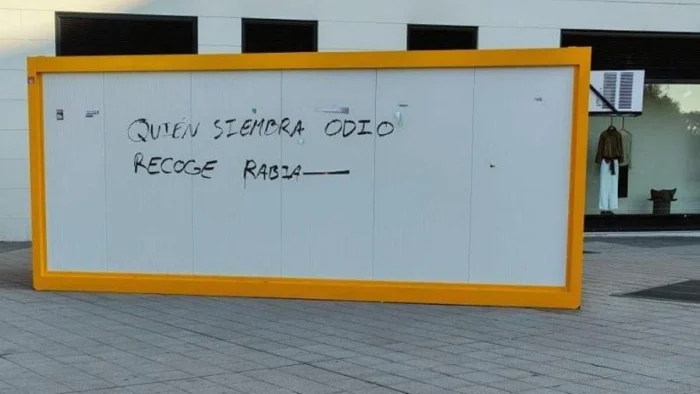 QUIÉN SIEMBRA ODIO
RECOGE RABIA